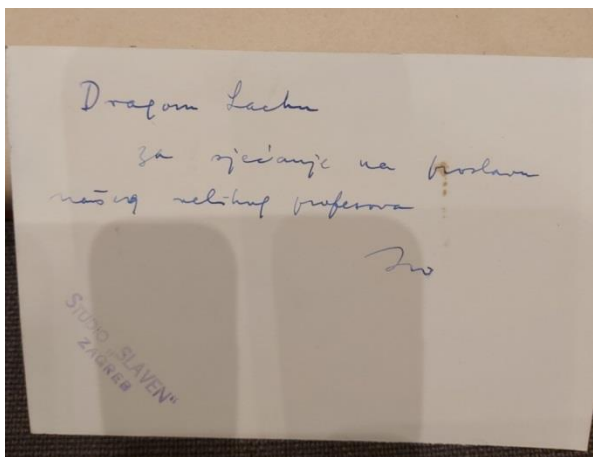 Dragom Lachu
za sjećanje na proslavu
našeg velikog profesora
Ivo
STUDIO „SLAVEN“
ZAGREB